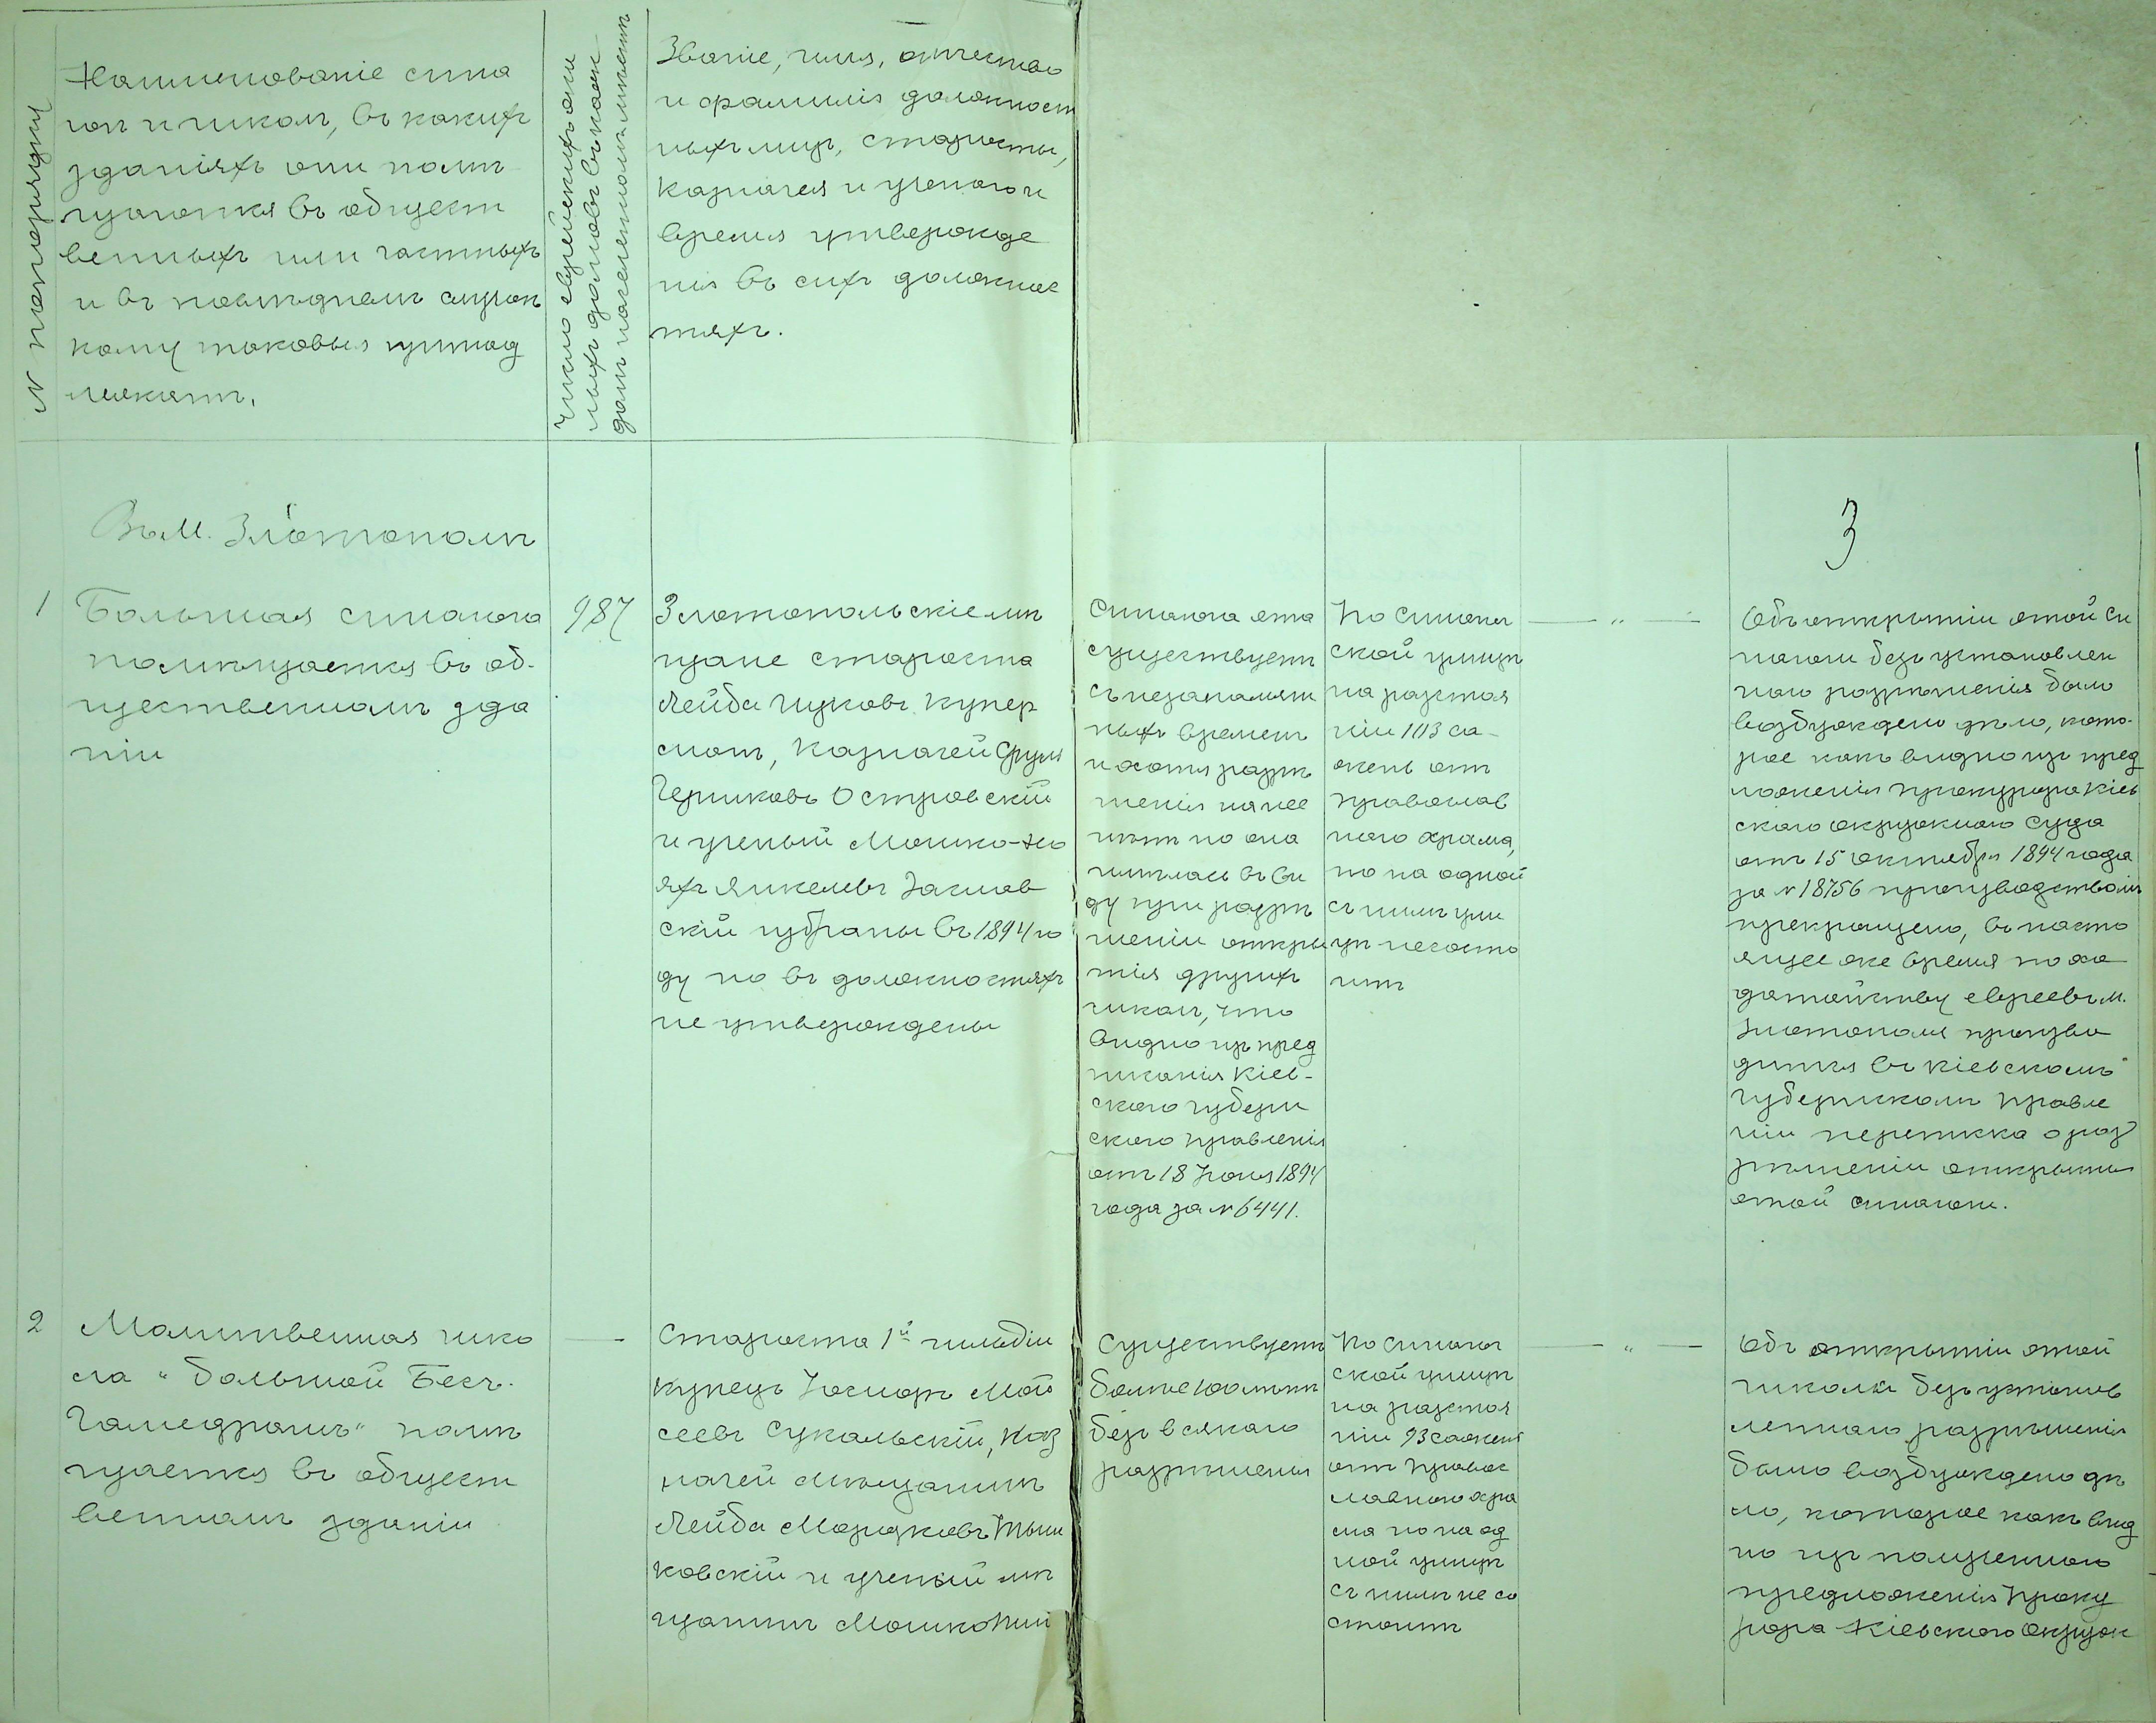 № попорядку
Наименованіе сина
гогъ и школъ, въ какихъ
зданіяхъ они помѣ
щаются въ общест
венныхъ или частныхъ
и въ послѣднемъ случаѣ
кому таковыя принад
лежатъ.
Число еврейскихъ
домовъ въ
Званіе, имя, отчество
и фамилія должност
ныхъ лицъ, старосты,
казначея и ученаго и
время утвержде
нія въ сихъ должнос
тяхъ.
Въ М. Златополѣ
3
1
Большая синагога
помѣщается въ об-
щественномъ зда
ніи
987
Златопольскіе мѣ
щане староста
Лейба Ицковъ Купер
матъ, Казначей Сруль
Гершковъ Островскій
и ученый Мошко-Но
яхъ Янкелевъ Заслав
скій избраны въ 1894 го
ду но въ должностяхъ
не утверждены
Синагога эта
существуетъ
съ незапамят
ныхъ временъ
и хотя разрѣ
шенія на нее
нѣтъ но она
имѣлась въ ви
ду при разрѣ
шеніи откры
тія другихъ
школъ, что
видно изъ пред
писанія Кіев-
скаго губерн
скаго правленія
отъ 18 Іюля 1894
года за № 6441.
По Синагог
ской улицѣ
на разстоя
ніи 103 са-
женъ отъ
православ
наго храма,
но на одной
съ нимъ ули
цѣ несосто
итъ
— " —
Объ открытіи этой си
нагоги безъ установлен
наго разрѣшенія было
возбуждено дѣло, кото-
рое какъ видно изъ пред
ложенія прокурора Кіев
скаго окружнаго суда
отъ 15 октября 1894 года
за № 18756 производствомъ
прекращено, въ насто
ящее же время по хо
датайству евреевъ м.
Златополя произво
дится въ Кіевскомъ
губернскомъ правле
ніи переписка о раз
рѣшеніи открытія
этой синагоги.
2
Молитвенная шко
ла "большой Бесъ-
Гамедрашъ" помѣ
щается въ общест
венномъ зданіи
—
Староста 1й гильдіи
купецъ Іосифъ Мой
сеевъ Сукальскій, Каз
начей мѣщанинъ
Лейба Мордковъ Тыш
ковскій и ученый мѣ
щанинъ Мошко
Существуетъ
болѣе 100 лѣтъ
безъ всякаго
разрѣшенія
По Синагог
ской улицѣ
на разстоя
ніи 93 сажени
отъ Правос
лавнаго хра
ма но на од
ной улицѣ
съ нимъ не со
стоитъ
— " —
Объ открытіи этой
школы безъ установ
леннаго разрѣшенія
было возбуждено дѣ
ло, которое какъ вид
но изъ полученнаго
предложенія Проку
рора Кіевскаго Окруж